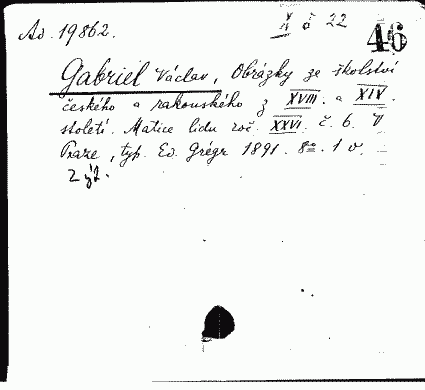 Av. 19862.
X o 22
46
Gabriel Václav, Obrázky ze školství
českého a rakouského z XVIII. a XIV.
století. Matice lidu roč. XXVI. č. 6. V
Praze, typ. Ed. Grégr 1891. 8º. 1 v.
2 výt.